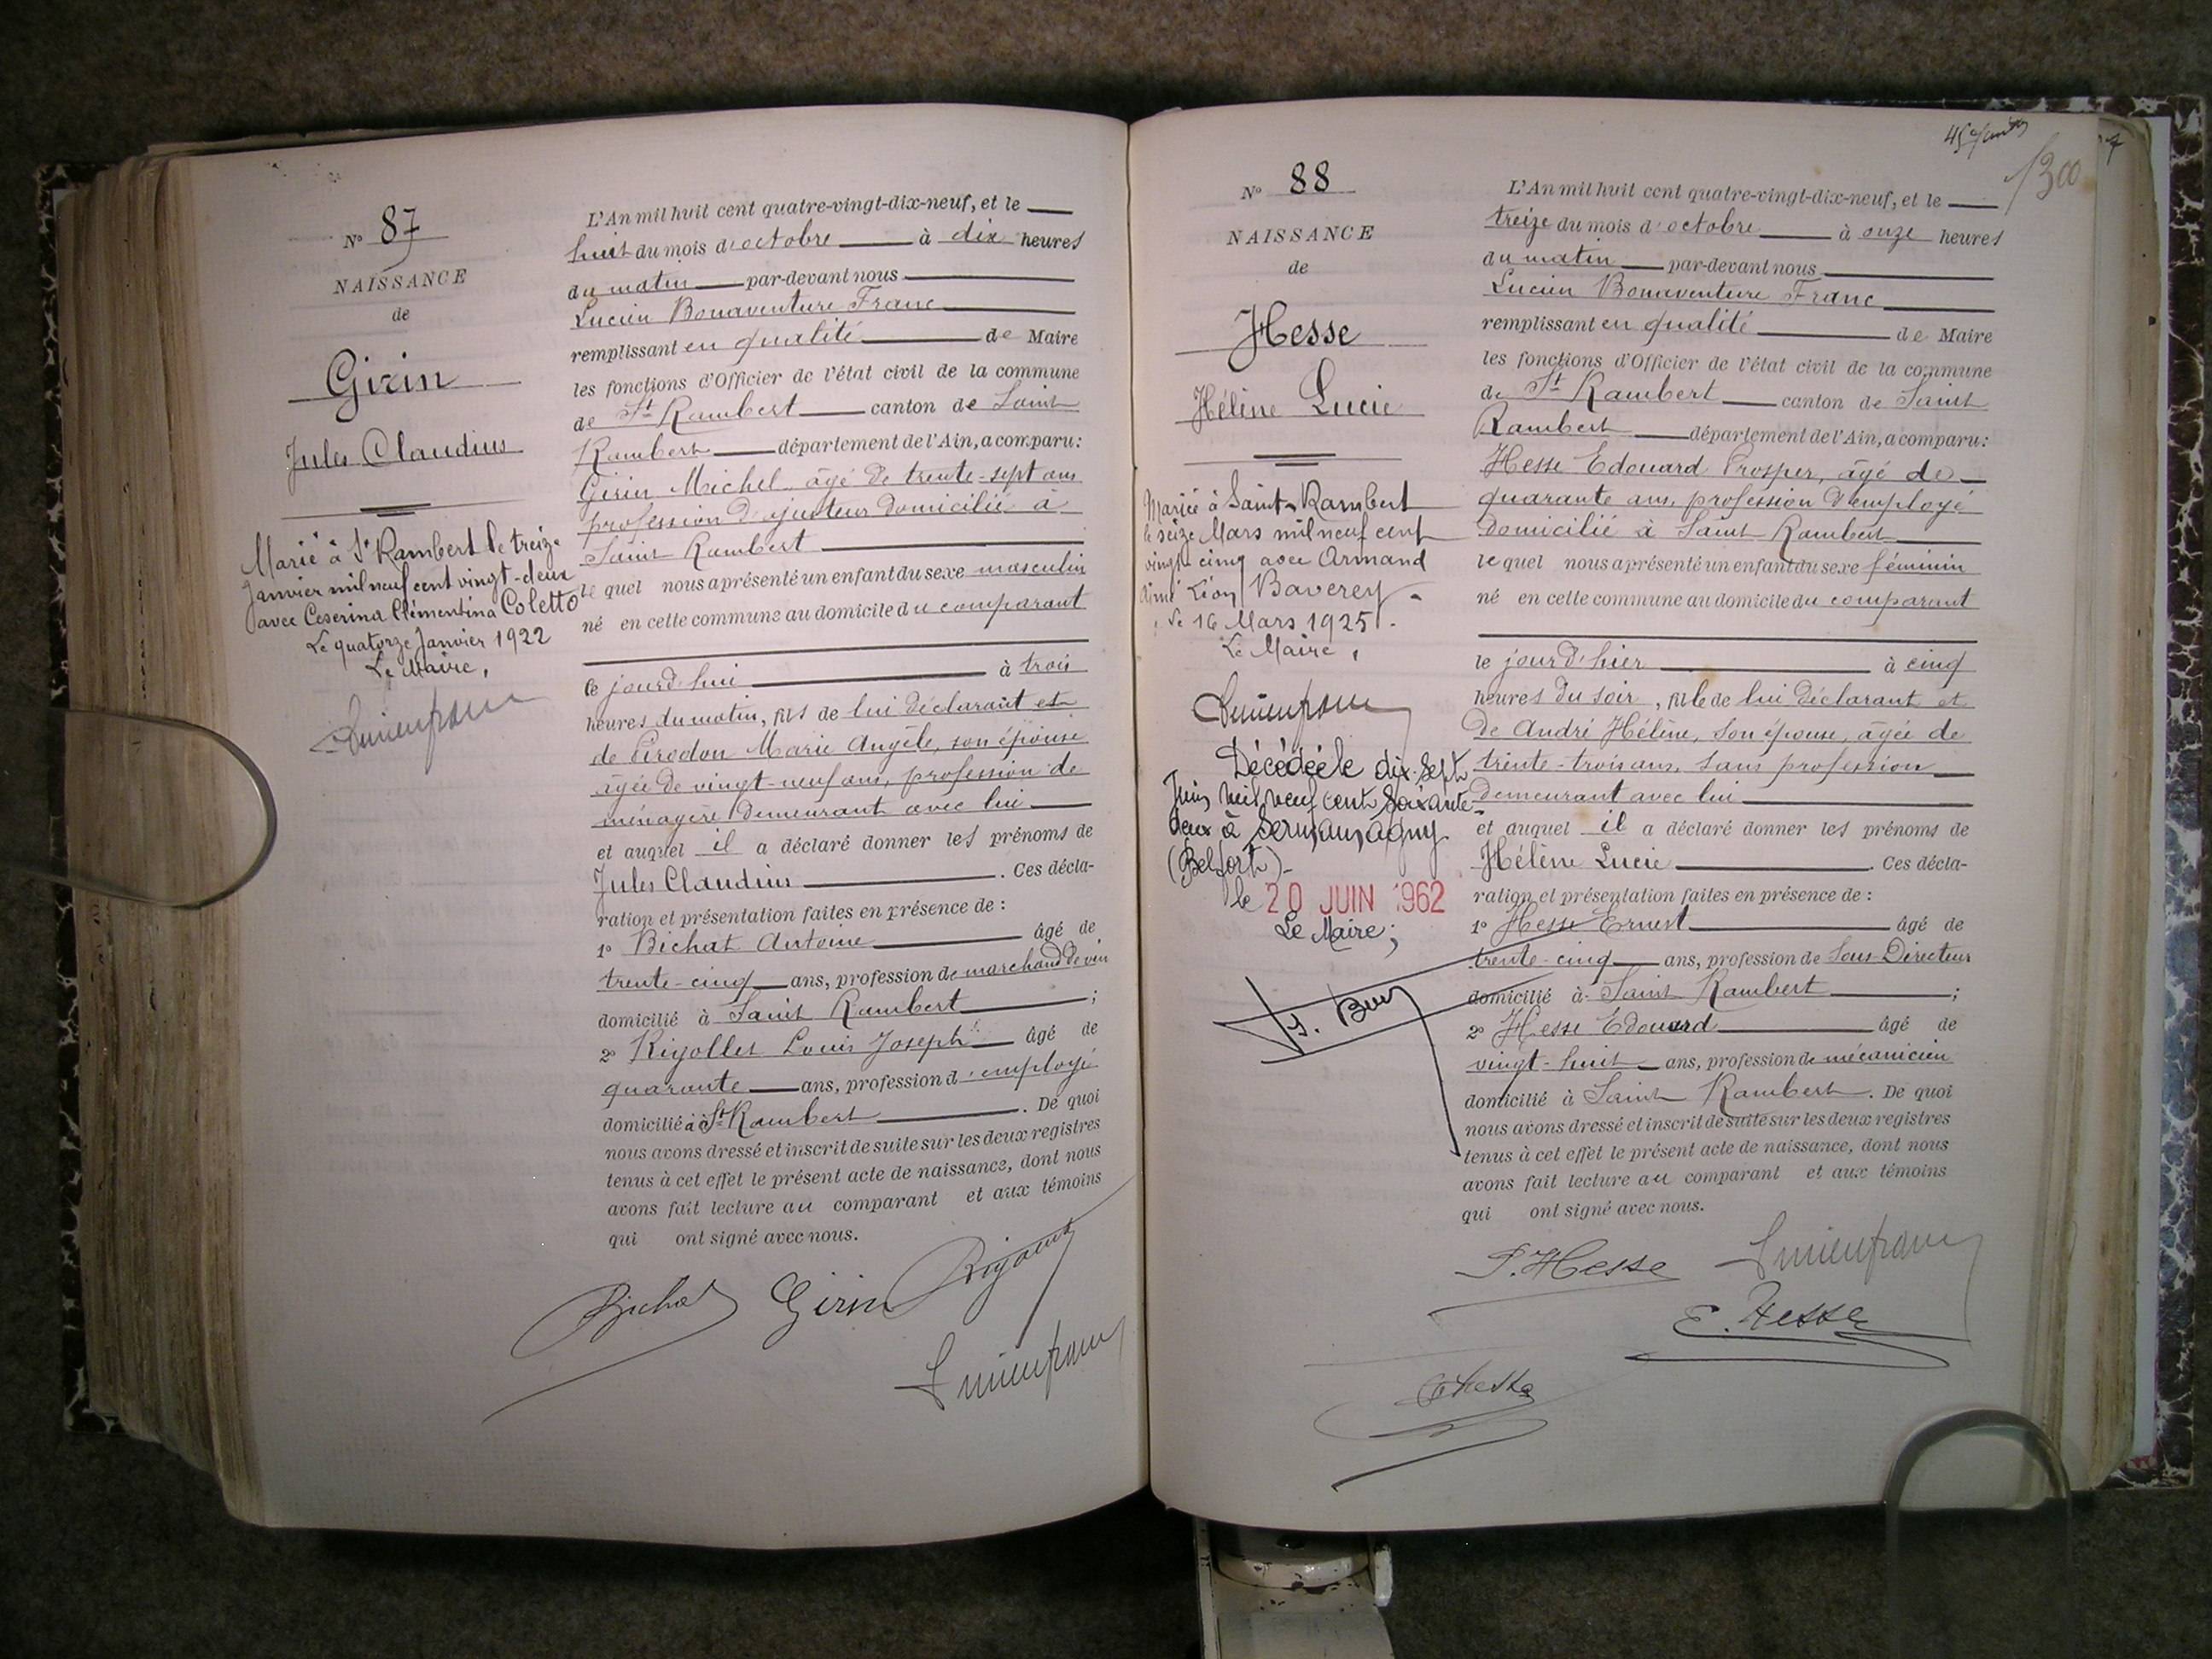 Nº 87
NAISSANCE
de
Girin
Jules Claudius
Marié à St Rambert le treize
Janvier mil neuf cent vingt-deux
avec Ceserina Clémentina Coletto
Le quatorze Janvier 1922
Le Maire,
L'An mil huit cent quatre-vingt-dix-neuf, et le
huit du mois d'octobre à dix heures
du matin par-devant nous
Lucien Bonaventure Franc
remplissant en qualité de Maire
les fonctions d'Officier de l'état civil de la commune
de St Rambert canton de Saint
Rambert département de l'Ain, a comparu:
Girin Michel âgé de trente-sept ans
profession d'ajusteur domicilié à
Saint Rambert
le quel nous a présenté un enfant du sexe masculin
né en cette commune au domicile du comparant
le jourd'hui à trois
heures du matin, fils de lui déclarant et
de Pirodon Marie Angèle, son épouse
âgée de vingt-neuf ans, profession de
ménagère demeurant avec lui
et auquel il a déclaré donner les prénoms de
Jules Claudius. Ces décla-
ration et présentation faites en présence de :
1º Bichat Antoine âgé de
trente-cinq ans, profession de marchand de vin
domicilié à Saint Rambert ;
2º Rigollet Louis Joseph âgé de
quarante ans, profession d'employé
domicilié à St Rambert. De quoi
nous avons dressé et inscrit de suite sur les deux registres
tenus à cet effet le présent acte de naissance, dont nous
avons fait lecture au comparant et aux témoins
qui ont signé avec nous.
Bichat Girin
Nº 88
NAISSANCE
de
Hesse
Hélène Lucie
Mariée à Saint-Rambert
le seize Mars mil neuf cent
vingt cinq avec Armand
Aimé Léon Baverey
Le 16 Mars 1925.
Le Maire,
Décédée le dix-sept
Juin mil neuf cent soixante-
deux à Sermamagny
(Belfort)
le 20 JUIN 1962
Le Maire;
1300
L'An mil huit cent quatre-vingt-dix-neuf, et le
treize du mois d'octobre à onze heures
du matin par-devant nous
Lucien Bonaventure Franc
remplissant en qualité de Maire
les fonctions d'Officier de l'état civil de la commune
de St Rambert canton de Saint
Rambert département de l'Ain, a comparu:
Hesse Edouard Prosper, âgé de
quarante ans, profession d'employé
domicilié à Saint Rambert
le quel nous a présenté un enfant du sexe féminin
né en cette commune au domicile du comparant
le jourd'hier à cinq
heures du soir, fille de lui déclarant et
de André Hélène, son épouse, âgée de
trente-trois ans, sans profession
demeurant avec lui
et auquel il a déclaré donner les prénoms de
Hélène Lucie. Ces décla-
ration et présentation faites en présence de :
1º Hesse Ernest âgé de
trente-cinq ans, profession de Sous-Directeur
domicilié à Saint Rambert ;
2º Hesse Edouard âgé de
vingt-huit ans, profession de mécanicien
domicilié à Saint Rambert. De quoi
nous avons dressé et inscrit de suite sur les deux registres
tenus à cet effet le présent acte de naissance, dont nous
avons fait lecture au comparant et aux témoins
qui ont signé avec nous.
P. Hesse
E. Hesse